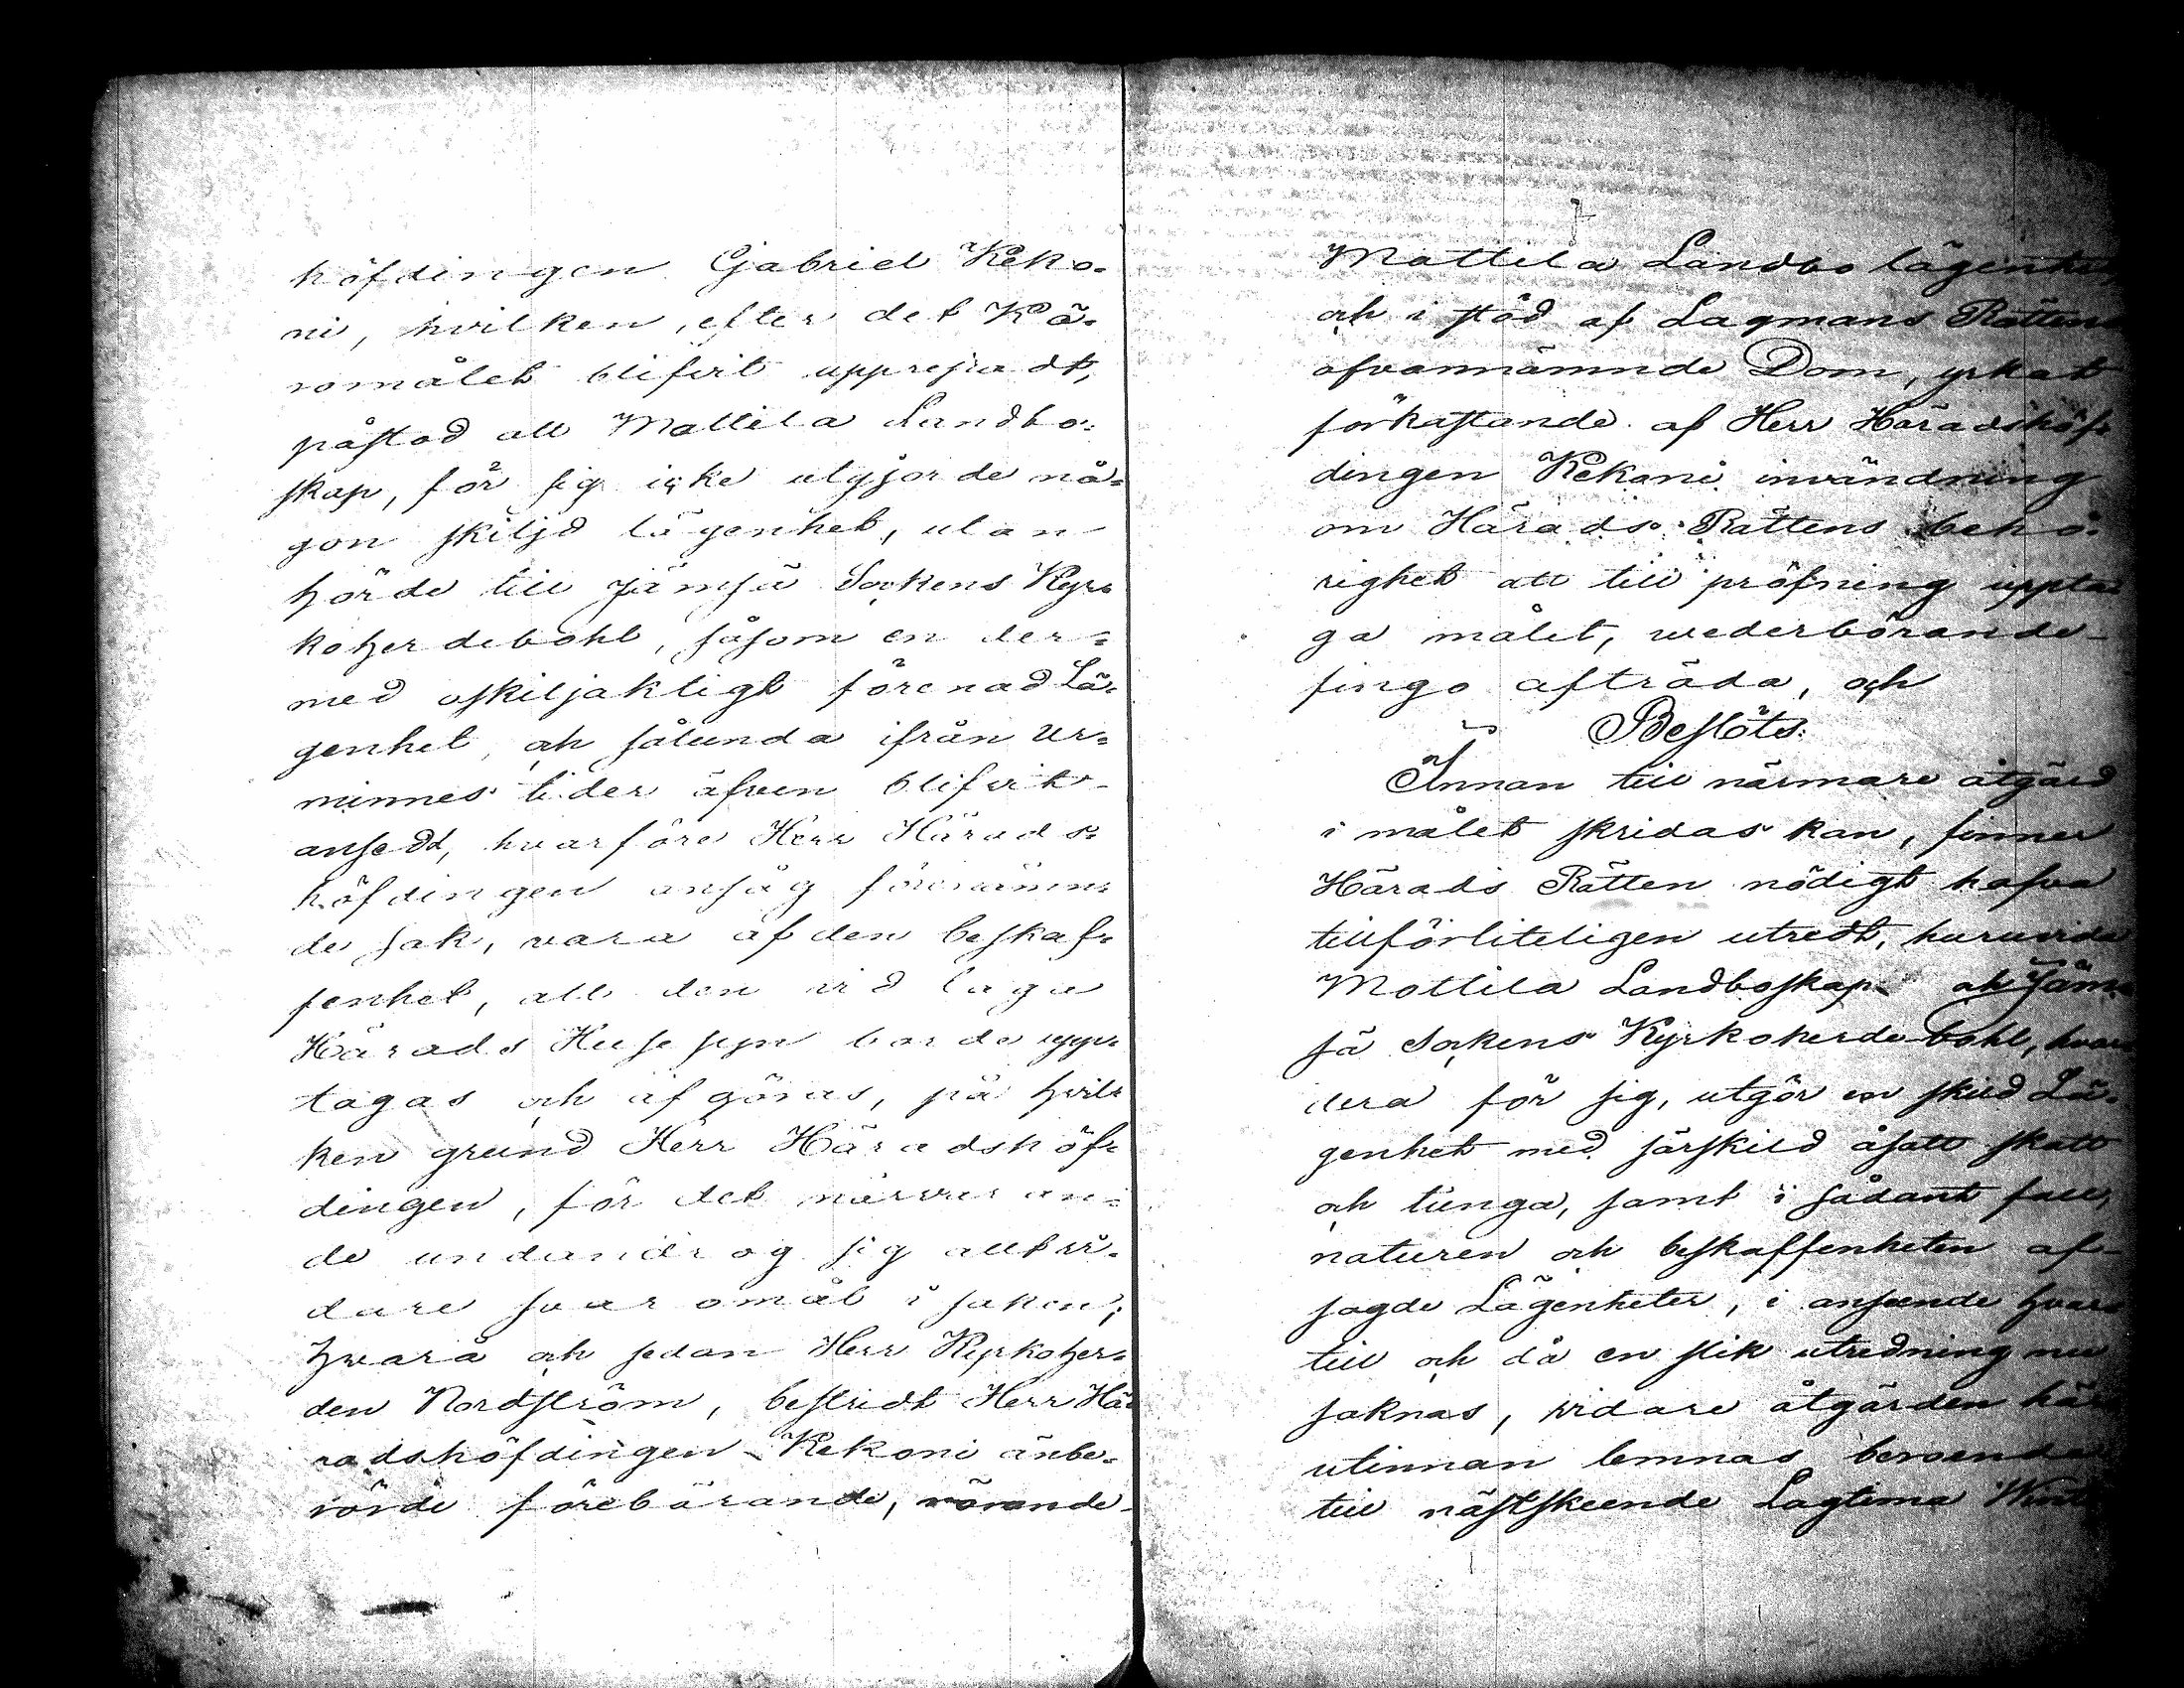 höfdingen Gabriel Keko-
ni, hvilken, efter det Kä-
romålet blifvit upprepadt,
påstod att Mattila Landbo-
skap, för sig icke utgjorde nå-
gon skiljd lägenhet, utan
hörde till Jämsä Sockens Kyr-
koherdebohl, såsom en der-
med oskiljaktigt förenad Lä-
genhet, och sålunda ifrån ur-
minnes tider äfven blifvit
ansedd, hvarföre Herr Härads-
höfdingen ansåg förenämn-
de sak, vara af den beskaf-
fenhet, att den vid laga
Härads Husesyn borde upp-
tagas och afgöras, på hvil-
ken grund Herr Häradshöf-
dingen, för det närvaran-
de undandrog sig allt vi-
dare svaromål i saken;
hvarå och sedan Herr Kyrkoher-
den Nordström, bestridt Herr Hä-
radshöfdingen Kekoni anbe-
rörde förebärande, rörande
7
Mattila Landbo lägenhet,
och i stöd af Lagmans Rättens
ofvannämnde Dom, yrkat
förkastande af Herr Häradshöf-
dingen Kekoni invändning
om Härads-Rättens behö-
righet att till pröfning uppta-
ga målet, wederbörande
fingo afträda, och
Beslöts:
Innan till närmare åtgärd
i målet skridas kan, finner
Härads Rätten nödigt hafva
tillförliteligen utredt, huruvida
Mattila Landboskap och Jäm-
sä Sockens Kyrkoherde-bohl, hvar-
dera för sig, utgör en skild Lä-
genhet med särskild åsatt skatt
och tunga, samt i sådant fall,
naturen och beskaffenheten af
sagde Lägenheter, i anseende hvar-
till och då en slik utredning nu
saknas, vidare åtgärden här-
utinnan lemnas beroende
till nästskeende Lagtima